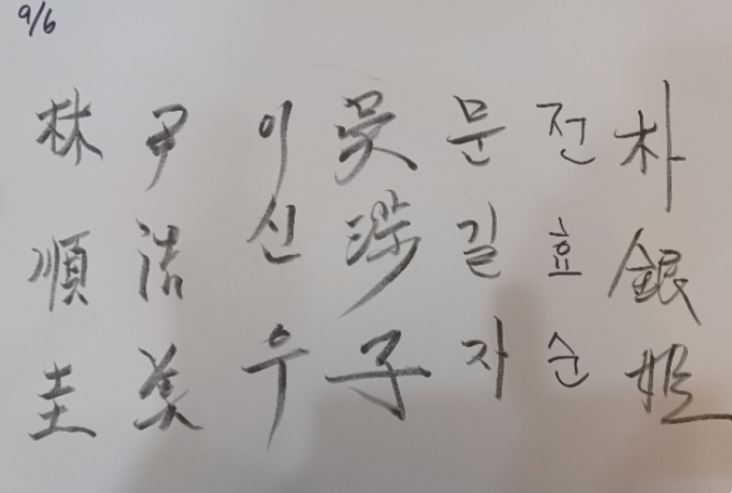 9/6
朴銀姬
전효순
문길자
吳涉子
이신우
尹洁美
林順圭